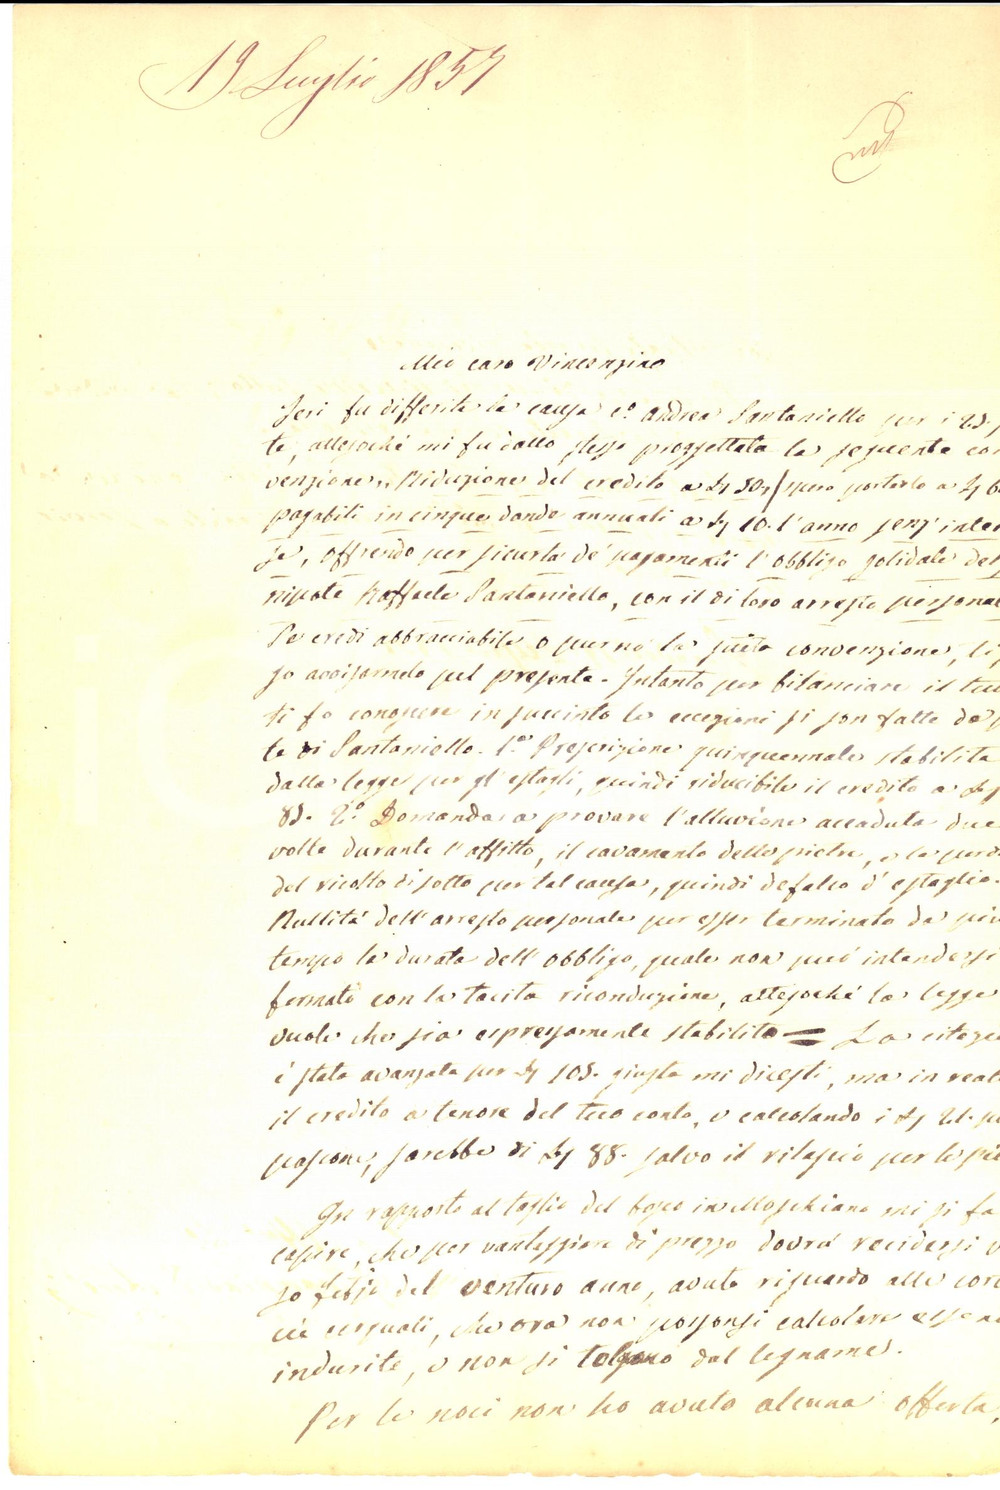 19 Luglio 1857
Mio caro Vincenzino
Jeri fu differita la causa c.o Andrea Santaniello per i 23,
te, attesoché mi fu dallo stesso proggettata la seguente con
venzione,, Riduzione del credito a 50, pure portarlo a 6
pagabili in cinque bande annuali a 10. l'anno senz'interes
se, offrendo per sicurtà de' pagamenti l'obbligo solidale del
nipote Raffaele Santaniello, con il di loro arresto personal
Se credi abbracciabile o pur nò la sudta convenzione, ti
go avvisarmelo pel presente. Intanto per bilanciare il tu
ti fo conoscere in succinto le eccezioni si son fatte da
te di Santaniello. 1.o Prescrizione quinquennale stabilita
dalla legge per gl'estagli, quindi riducibile il credito a
83. 2.o Domanda a provare l'alluvione accaduta due
volte durante l'affitto, il cavamento delle pietre, e la perdi
del ricolto di sotto per tal causa, quindi defalco d'estaglio.
Nullità dell'arresto personale per esser terminato da più
tempo la durata dell'obbligo, quale non può intendersi
fermato con la tacita riconduzione, attesoché la legge
vuole che sia espressamente stabilito = La citazio
è stata avanzata per 103. giusta mi dicesti, ma in real
il credito a tenore del tuo conto, e calcolando i 21. pe
pascone, sarebbe di 88. salvo il rilascio per le pie
In rapporto al taglio del bosco in Moschiano mi si fa
capire, che per vantaggiare di prezzo dovrà recidersi
so Febjo del venturo anno, avuto riguardo alle cort
cie cerquali, che ora non possonsi calcolare essend
indurite, e non si tolgono dal legname.
Per le noci non ho avuto alcuna offerta,